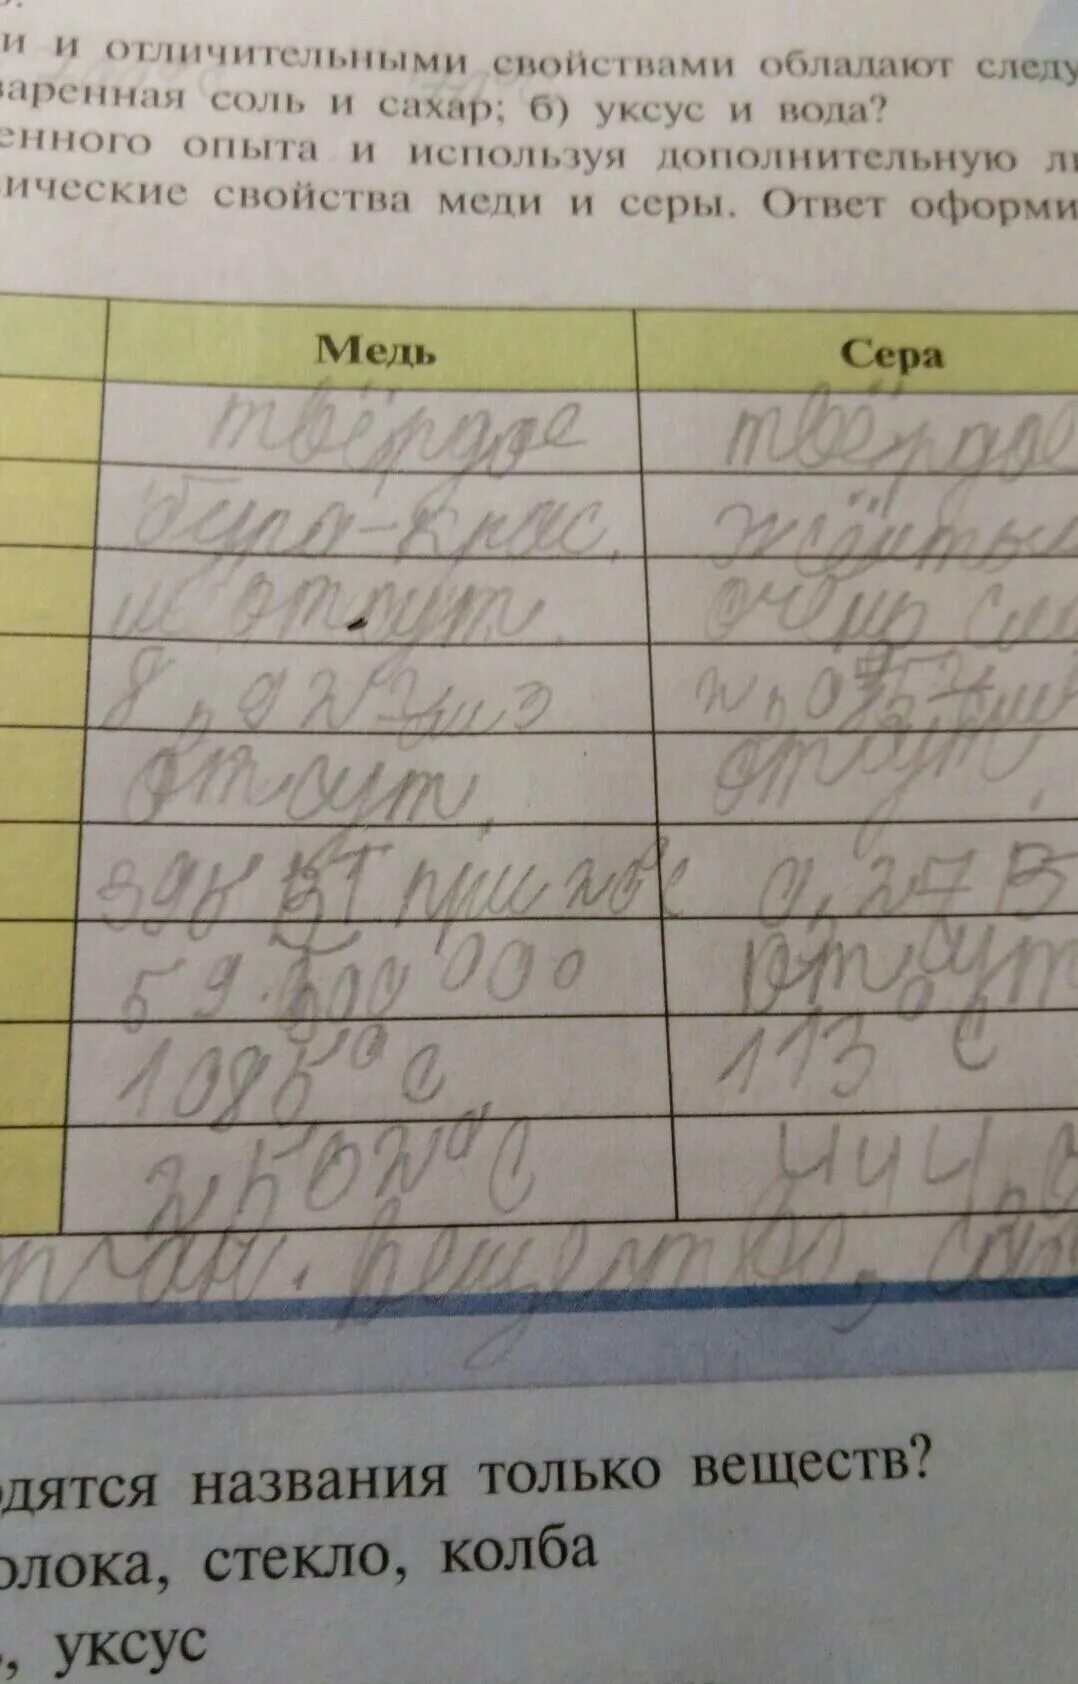 и и отличительными свойствами обладают следу
варенная соль и сахар; б) уксус и вода?
енного опыта и используя дополнительную ли
ические свойства меди и серы. Ответ оформи
Медь Сера
твёрдое твёрдое
буро-крас. жёлтый
отсут. очень
8,92 г/см3
отсут. отсут
при 0,27 В
59 500 000 отсут
1085°С 113°С
2502°С 444,
вещество,
одятся названия только веществ?
олока, стекло, колба
, уксус